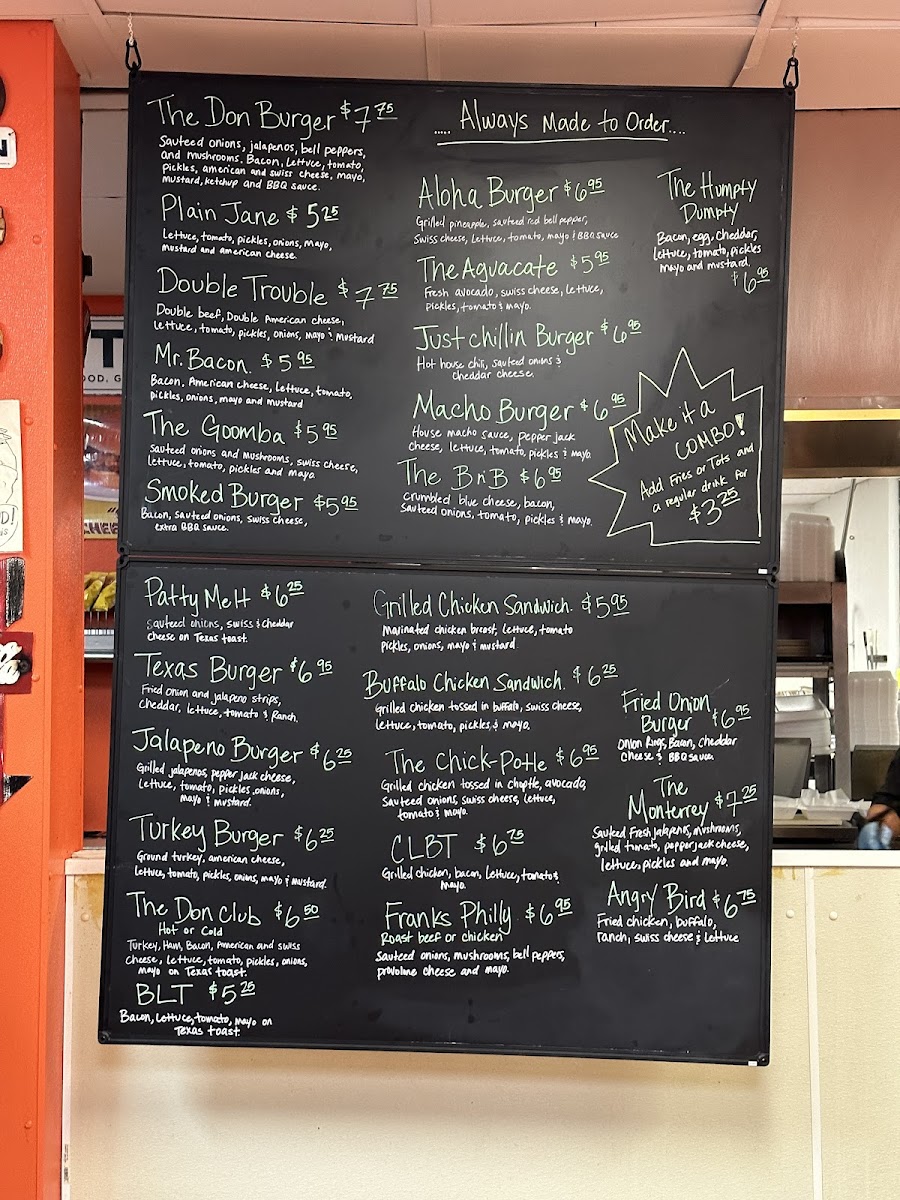 The Don Burger $7.75
Sauteed onions, jalapenos, bell peppers,
and mushrooms. Bacon, Lettuce, tomato,
Pickles, american and swiss cheese. mayo,
mustard, ketchup and BBQ sauce.
Plain Jane $5.25
Lettuce, tomato, pickles, onions, mayo,
mustard and american cheese.
Double Trouble $7.75
Double beef, Double American cheese,
lettuce, tomato, pickles, onions, mayo & Mustard
Mr. Bacon. $5.95
Bacon, American cheese, Lettuce, tomato,
pickles, onions, mayo and mustard
The Goomba $5.95
Sauteed onions and mushrooms, swiss cheese,
lettuce, tomato, pickles and mayo.
Smoked Burger $5.95
Bacon, sauteed onions, swiss cheese,
extra BBQ sauce.
..... Always Made to Order....
Aloha Burger $6.95
Grilled pineapple, sauteed red bell pepper,
Swiss cheese, Lettuce, tomato, mayo & BBQ sauce
The Aguacate $5.95
Fresh avocado, swiss cheese, lettuce,
Pickles, tomato & mayo.
Just chillin Burger $6.95
Hot house chili, sauteed onions &
cheddar cheese.
Macho Burger $6.95
House macho sauce, pepper jack
cheese, lettuce, tomato, pickles & mayo
The BnB $6.95
Crumbled blue cheese, bacon,
Sauteed onions, tomato, pickles & mayo.
The Humpty
Dumpty
Bacon, egg, Cheddar,
lettuce, tomato, pickles
mayo and mustard.
$6.95
Make it a
COMBO!
Add Fries or Tots and
a regular drink for
$3.25
Patty Melt $6.25
Sauteed onions, swiss & cheddar
cheese on Texas toast.
Texas Burger $6.95
Fried onion and jalapeno strips,
cheddar, lettuce, tomato & Ranch.
Jalapeno Burger $6.25
Grilled jalapenos, pepper jack cheese,
lettuce, tomato, pickles, onions,
mayo & mustard.
Turkey Burger $6.25
Ground turkey, american cheese,
Lettuce, tomato, pickles, onions, mayo & mustard.
The Don Club $6.50
Hot or Cold
Turkey, Ham, Bacon, American and swiss
Cheese, lettuce, tomato, pickles, onions,
mayo on Texas toast.
BLT $5.25
Bacon, Lettuce, tomato, mayo on
Texas toast.
Grilled Chicken Sandwich. $5.95
Marinated chicken breast, lettuce, tomato
pickles, onions, mayo & mustard.
Buffalo Chicken Sandwich. $6.25
Grilled chicken tossed in buffalo, swiss cheese,
lettuce, tomato, pickles & mayo.
The Chick-Potle $6.95
Grilled chicken tossed in chiptle, avocado,
Sauteed onions, swiss cheese, lettuce,
tomato & mayo.
CLBT $6.75
Grilled chicken, bacon, lettuce, tomato &
mayo.
Franks Philly $6.95
Roast beef or chicken
Sauteed onions, mushrooms, bell peppers,
provolone cheese and mayo.
Fried Onion
Burger $6.95
Onion Rings, Bacon, cheddar
cheese & BBQ sauce
The
Monterrey $7.25
Sauteed Fresh jalapenos, mushrooms,
grilled tomato, pepper jack cheese,
lettuce, pickles and mayo.
Angry Bird $6.75
Fried chicken, buffalo,
ranch, swiss cheese & lettuce